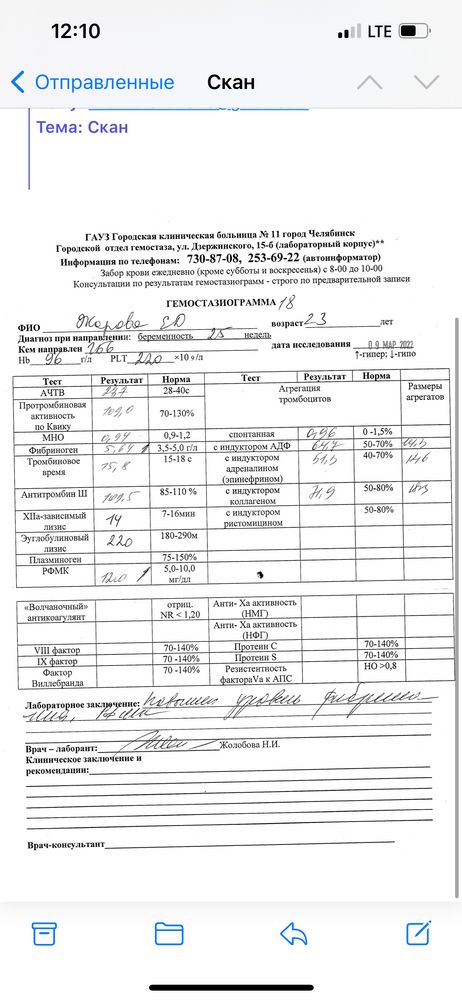 12:10
LTE
Отправленные
Скан
Тема: Скан
ГАУЗ Городская клиническая больница № 11 город Челябинск
Городской отдел гемостаза, ул. Дзержинского, 15-б (лабораторный корпус)**
Информация по телефонам: 730-87-08, 253-69-22 (автоинформатор)
Забор крови ежедневно (кроме субботы и воскресенья) с 8-00 до 10-00
Консультации по результатам гемостазиограмм - строго по предварительной записи
ГЕМОСТАЗИОГРАММА 18
ФИО Жарова ЕД возраст 23 лет
Диагноз при направлении: беременность 25 недель
Кем направлен дата исследования 09 МАР 2022
Hb 96 г/л PLT 220 ×10 9/л ↑-гипер; ↓-гипо
Тест Результат Норма Тест Результат Норма Размеры агрегатов
АЧТВ 28-40с Агрегация тромбоцитов
Протромбиновая активность по Квику 109,0 70-130%
МНО 0,94 0,9-1,2 спонтанная 0,96 0 -1,5%
Фибриноген 5,64 ↑ 3,5-5,0 г/л с индуктором АДФ 64,7 50-70%
Тромбиновое время 15,8 15-18 с с индуктором адреналином (эпинефрином) 40-70%
Антитромбин III 101,5 85-110 % с индуктором коллагеном 71,9 50-80%
XIIа-зависимый лизис 14 7-16мин с индуктором ристомицином 50-80%
Эуглобулиновый лизис 220 180-290м
Плазминоген 75-150%
РФМК 12,0 ↑ 5,0-10,0 мг/дл
«Волчаночный» антикоагулянт отриц. NR < 1,20 Анти- Ха активность (НМГ)
Анти- Ха активность (НФГ)
VIII фактор 70-140% Протеин С 70-140%
IX фактор 70 -140% Протеин S 70-140%
Фактор Виллебранда 70 -140% Резистентность фактораVа к АПС НО >0,8
Лабораторное заключение: Повышен уровень фибрино
гена, РФМК
Врач – лаборант: Жолобова Н.И.
Клиническое заключение и
рекомендации:
Врач-консультант